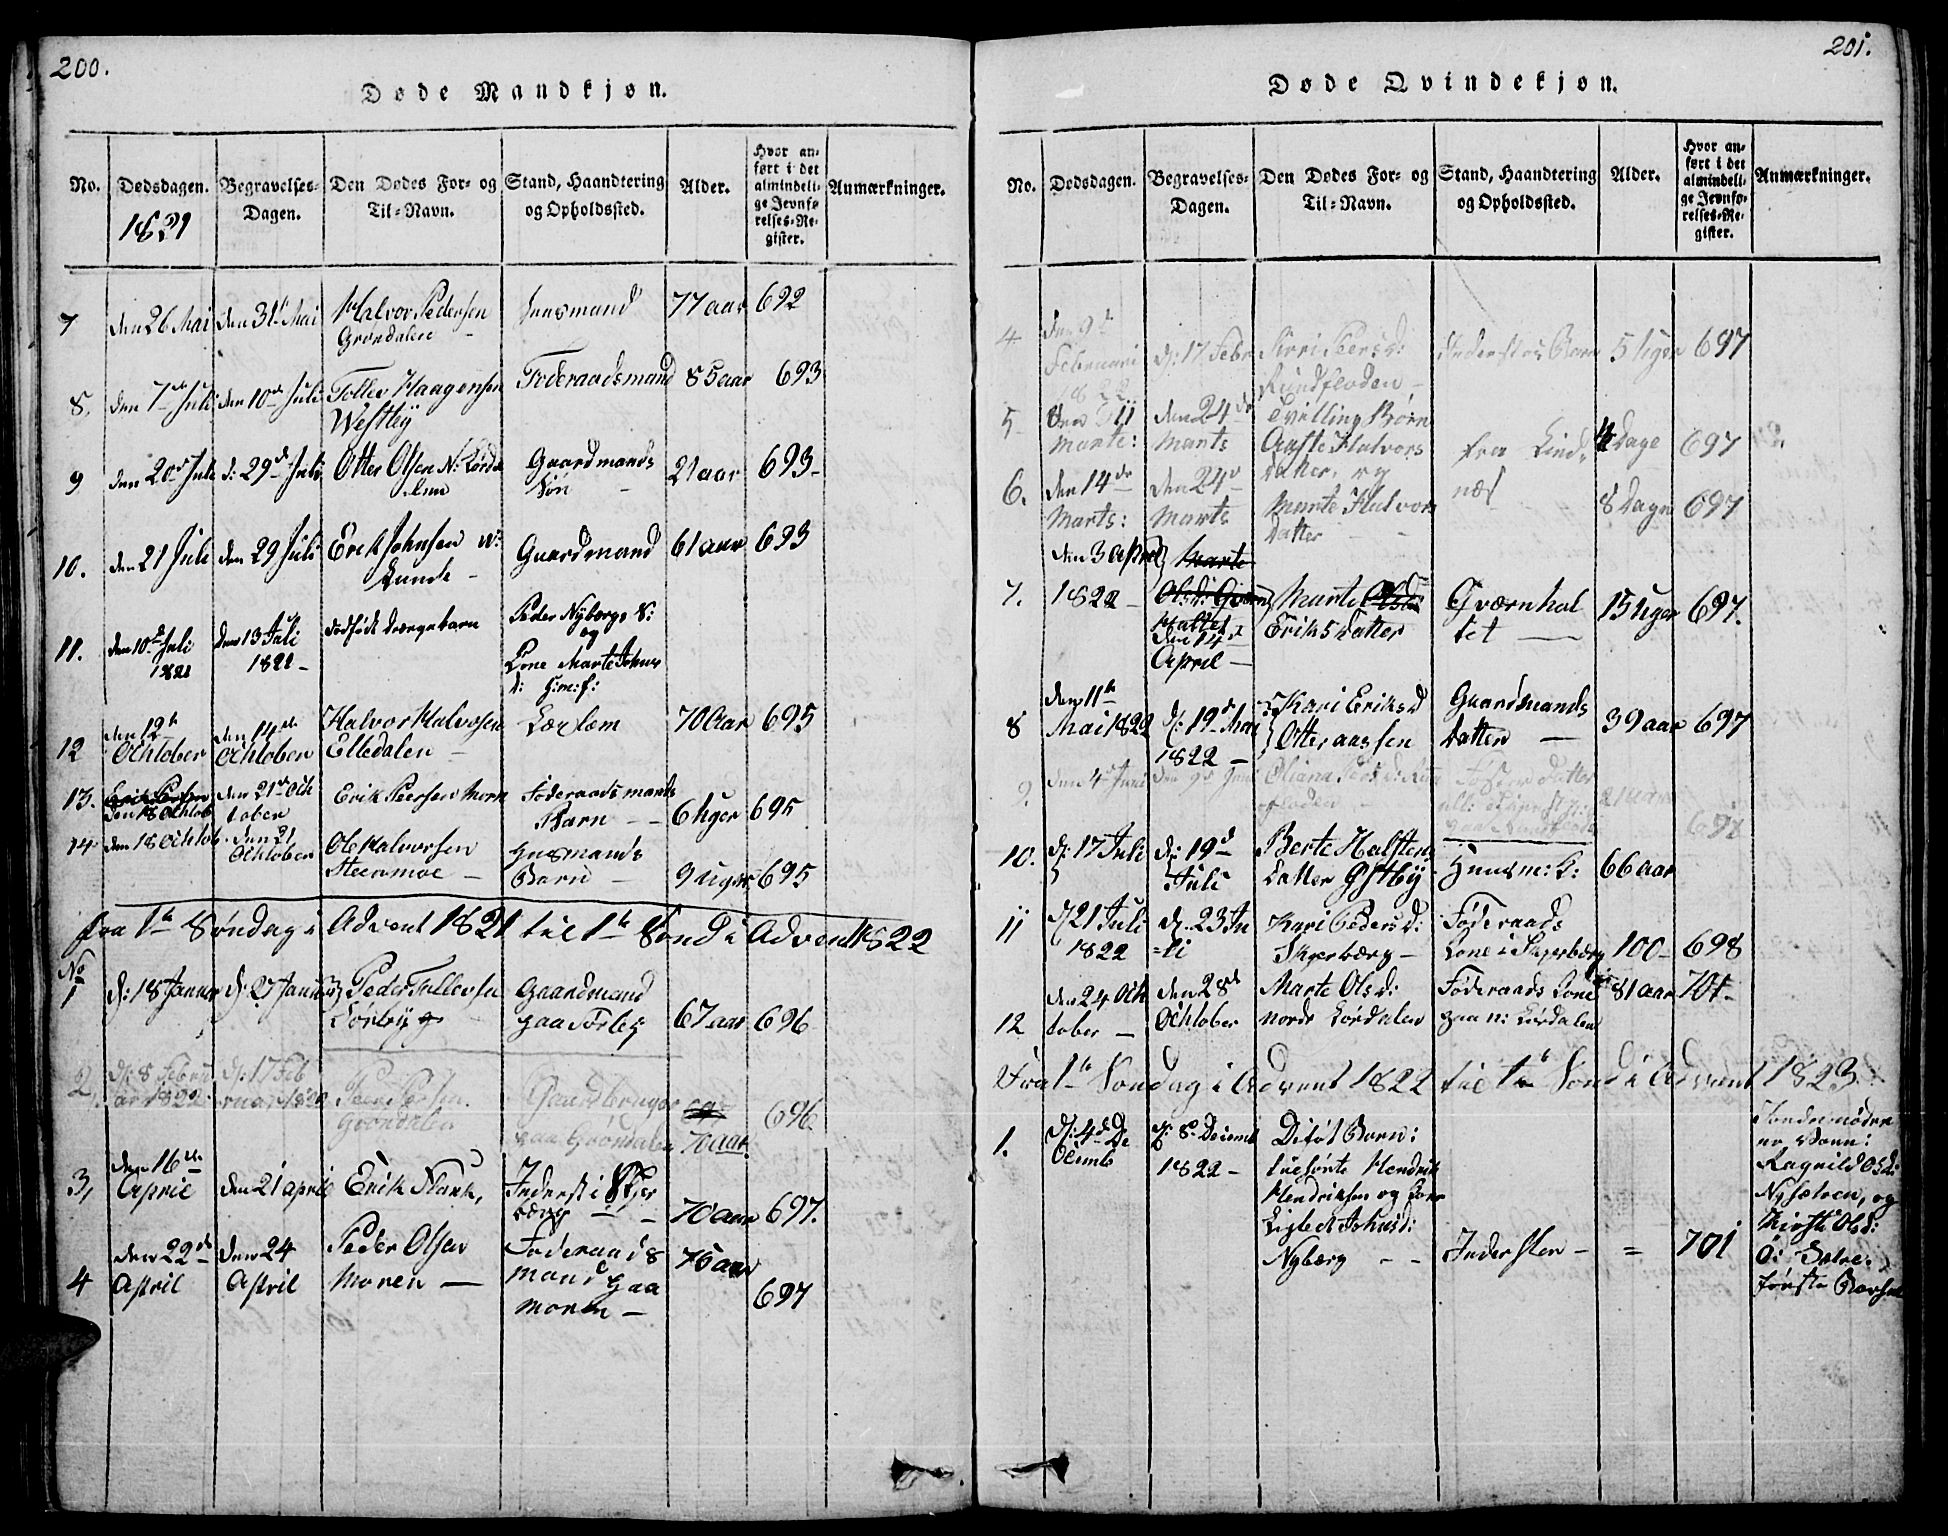 200.
Døde Mandkjøn.
No.
Dødsdagen.
1821
Begravelses-
Dagen.
Den Dødes For- og
Til-Navn.
Stand, Haandtering
og Opholdssted.
Alder.
Hvor an-
ført i det
almindeli-
ge Jevnfø-
relses-Re-
gister.
Anmærkninger.
7 den 26 Mai den 31te Mai Halvor Pedersen
Grøndalen
Huusmand 77 aar 692
8. den 7de Juli den 10de Juli Tollev Haagensen
Westby
Føderaadsmand 85 aar 693
9 den 20de Juli d: 29de Juli Otter Olsen N: Lørda
len
Gaardmands
Søn 21 aar 693
10. den 21 Juli den 29 Juli Erik Johnsen W:
Lunde
Gaardmand 61 aar 693
11. den 10de Juli
1821
den 13 Juli
1821
dødfødt drængebarn
Peder Nyberg S:
og
Kone Marte Johns
d:
12 den 12te
Ochtober
den 14de
Ochtober
Halvor Halvorsen
Elledalen
Læxlem 70 Aar 695
13. Erik Persen
Den 18 Ochtob
den 21de Och
tober
Erik Peersen Moren
Føderaadsmands
Barn 6 uger 695
14 den 18 Ochtob. den 21
Ochtober
Ole Halvorsen
Steenmoe
Huusmands
Barn 9 uger 695
fra 1te Søndag i Advent 1821 til 1te Sønd i Advent 1822
No
1 d: 18 Januar d: 27 Januar Peder Tollevsen
Sørby
Gaardmand
paa Sørby 67 aar 696
2. d: 8 Febru
ar 1822
d: 17 Feb
ruar 1822
Peer Persen
Grøndalen
Gaardbruger
paa Grøndalen
70 aar. 696
3, den 16de
April
den 21 april Erik Skank,
Inderst i Skjer
bærg 70 aar 697.
4 den 22de
April
den 24
April
Peder Olsen
Moren
Føderaads
mand paa
Moren
76 aar 697
201.
Døde Qvindekjøn.
No.
Dødsdagen.
Begravelses-
Dagen.
Den Dødes For- og
Til-Navn.
Stand, Haandtering
og Opholdssted.
Alder.
Hvor an-
ført i det
almindeli-
ge Jevnfø-
relses-Re-
gister.
Anmærkninger.
4 den 9de
Februari
1822
d: 17 Febr Siri Peersd:
Rundfloden
Inderstes Barn 5 uger 697
5 den 11
Marts:
den 24de
Marts
Tvilling Børn
Aaste Halvors
Datter, og
fra Lind-
næs
4 Dage 697
6. den 14de
Marts:
den 24de
Marts
Marte Halvors
Datter
8 Dage 697
7. den 3 april
1822
Marte
Olsd: Qværn
haltet
den 14de
April
Marte Olsd
Eriks Datter
Qværnhol
tet 15 uger 697.
8 den 11te
Mai 1822
d: 19de Mai
1822
Kari Eriksd
Otteraassen
Gaardmands
Datter 39 aar 697
9. den 4de Juni den 9de Juni Oliana Peersd: Rund
floden
697
10. d: 17 Juli d: 19de
Juli
Berte Halstens
Datter Østby
Huusm: K: 66 aar
11 d 21 Juli
1822
d. 23 Ju
=li
Kari Peders d:
Skjerbærg
Føderaads
Kone i Skjerbærg 100 698
12 den 24 Och
tober
den 28de
Ochtober
Marte Olsd:
nordr Lørdalen
Føderaads Kone
paa n: Lørdalen 81 aar 701
Fra 1te Søndag i Advent 1822 til 1te Sønd i Advent 1823.
1. d: 4de De
cemb
d: 8de Decemb
1822
Døføt Barn:
tilhørte Hendrik
Hendriksen og Kone
Ligbet Johnsd:
Nyberg
Inderster = 701
Jordemødre
ne vare:
Ragnild Olsd:
Nysæteren, og
Kirsti Olsd:
første Barsel